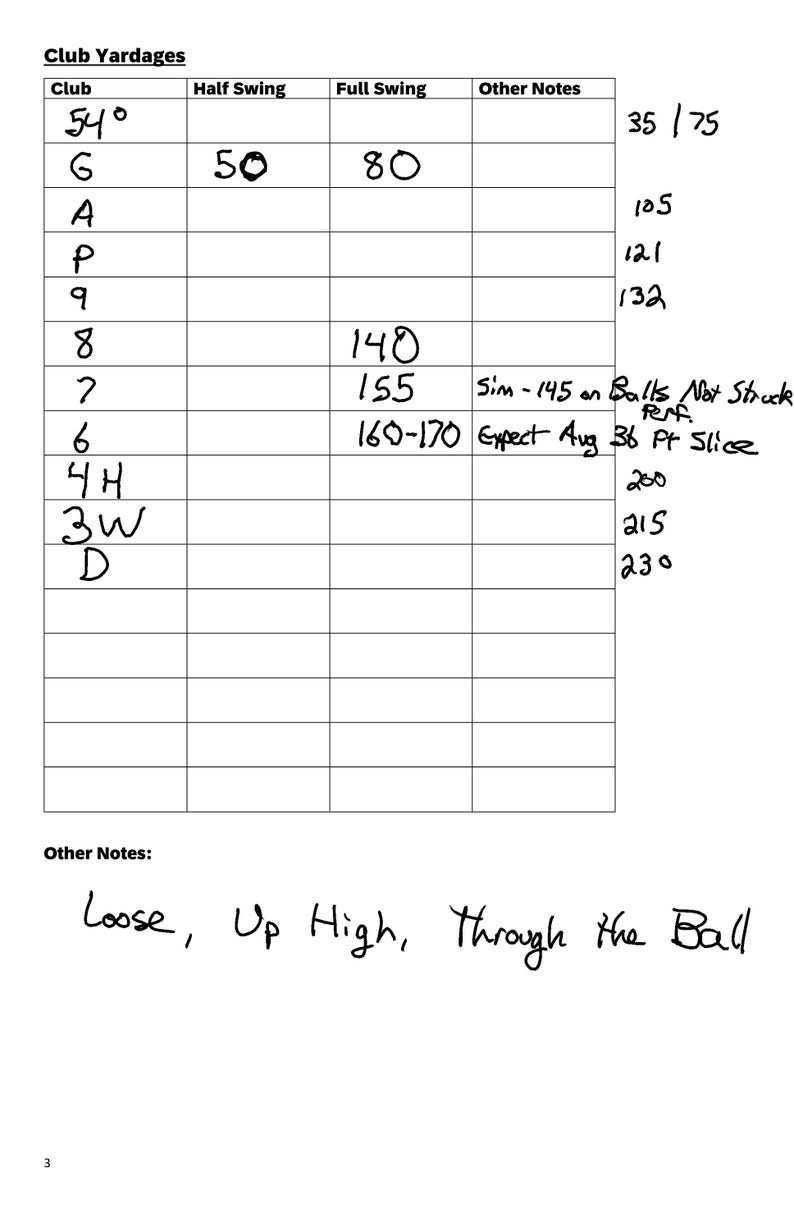 Club Yardages
Club Half Swing Full Swing Other Notes
54° 35 / 75
G 50 80
A 105
P 121
9 132
8 140
7 155 Sim - 145 on Balls Not Struck
Perf.
6 160-170 Expect Avg 36 Ft Slice
4H 200
3W 215
D 230
Other Notes:
Loose, Up High, Through the Ball
3